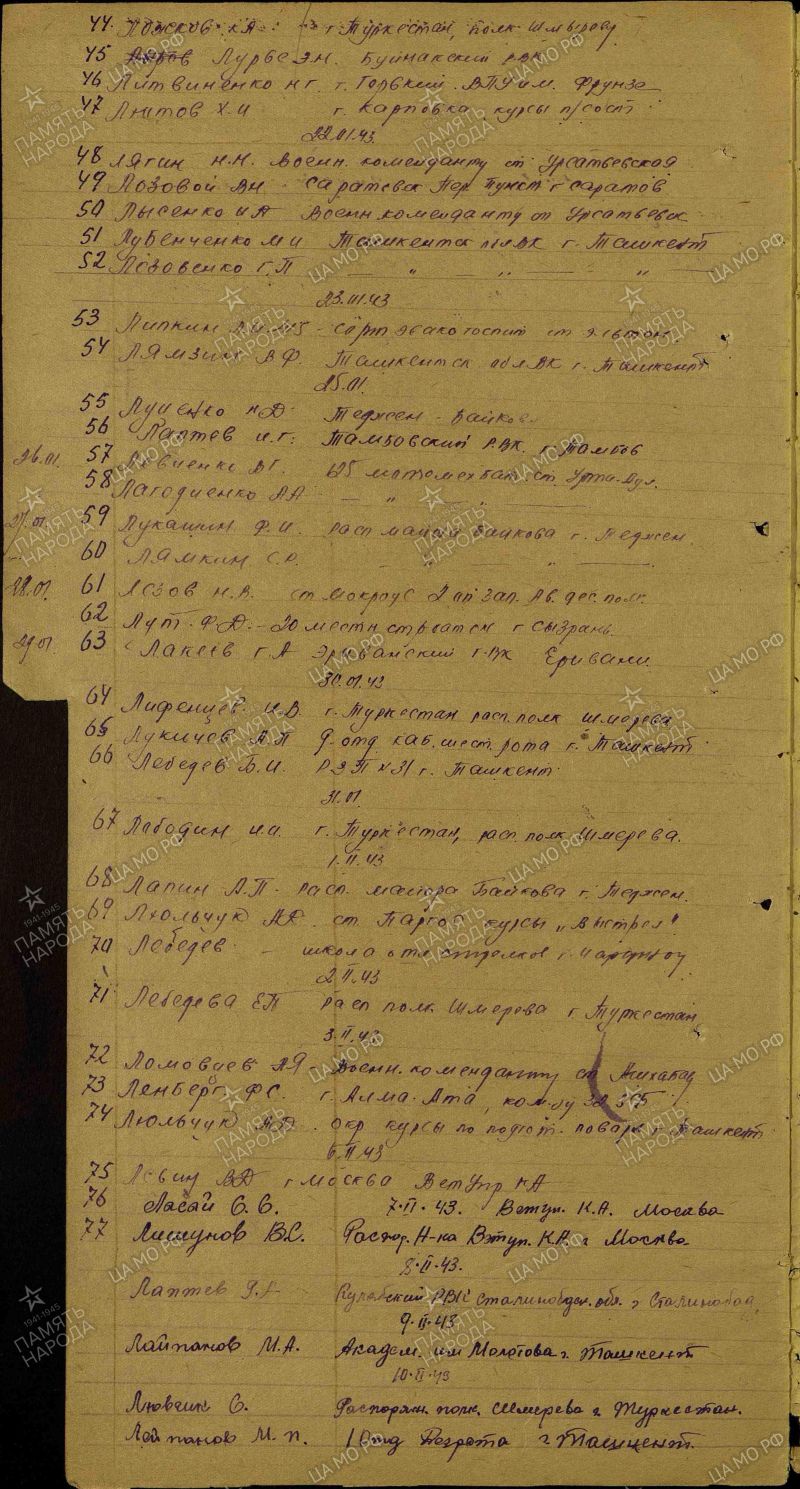 44 Ложков К.А. г. Туркестан, полк Шмырова
45 Лурье Э.Н. Буйнакский РВК
46 Литвиненко Н.Г. г. Горький ВПУ им. Фрунзе
47 Лютов Х.И г. Карповка курсы п/сост
22.01.43
48 Лягин Н.Н. Военн. коменданту ст Урсатьевская
49 Лозовой В.Н. Саратовск Пер. пункт г Саратов
50 Лысенко И А Военн. коменданту ст Урсатьевск
51 Лубенченко М И Ташкентск облВК г. Ташкент
52 Лозовенко Г.П — " — " — "
23.01.43
53 Липкин сорт эвакогоспит ст Эльтон
54 Лямзин В Ф. Ташкентск облВК г. Ташкент
25.01.
55 Луценко Н Д. Теджен - Байков
56 Лаптев И.Г. Тамбовский РВК. г. Тамбов
26.01. 57 Левченко В Г. 125 мотомехбат ст.
58 Лагодиенко А А — " — "
27.01 59 Лукашин Ф.И. расп майора Байкова г. Теджен
60 Лямкин С.О. — " — " — "
28.01. 61 Лозов Н.В. ст Мокроус 2 ап зап. Ав. дес. полк
62 Лут. Ф.Д. - 20 местн стр батсн г Сызрань
29.01. 63 Лакеев Г А Эриванский Г.ВК Еривани
30.01.43
64 Лифенцев И.В. г. Туркестан расп. полк Шмерева
65 Лукичев А.П 9 отд кав. шест. рота г. Ташкент
66 Лебедев Б.И. РЭП № 31 г. Ташкент
31.01.
67 Лабодин И.И. г. Туркестан, расп. полк Шмерева.
1.II.43
68 Лапин А.П - расп. майора Байкова г. Теджен.
69 Люльчук А.Д. ст. курсы „Выстрел"
70 Лебедев - школа отл стрелков г. Чарджоу
2.II.43
71 Лебедева Е П расп полк Шмерева г Туркестан
3.II.43
72 Ломовцев А Я - Военн. коменданту ст Ашхабад
73 Ленберг Ф С. г. Алма-Ата, ком-ру 30 ЗСБ
74 Люльчук А.Д. окр курсы по подгот. повар. г. Ташкент
6.II.43
75 Левин В Д г Москва Вет Упр КА
76 Ласай С. С. 7.II.43. Ветуп. К.А. Москва
77 Лишунов В.С. Распор. Н-ка Ветуп. К.А. г Москва
8.II.43.
Лаптев Кулябский РВК Сталинобадск. обл. г Сталинобад
9.II.43
Лайпанов М.А. Академ. им Молотова г. Ташкент
10.II.43
Любчик С. Распоряж. полк. Шмерева г. Туркестан.
Лайпанов М.П. 1 отд г Ташкент.